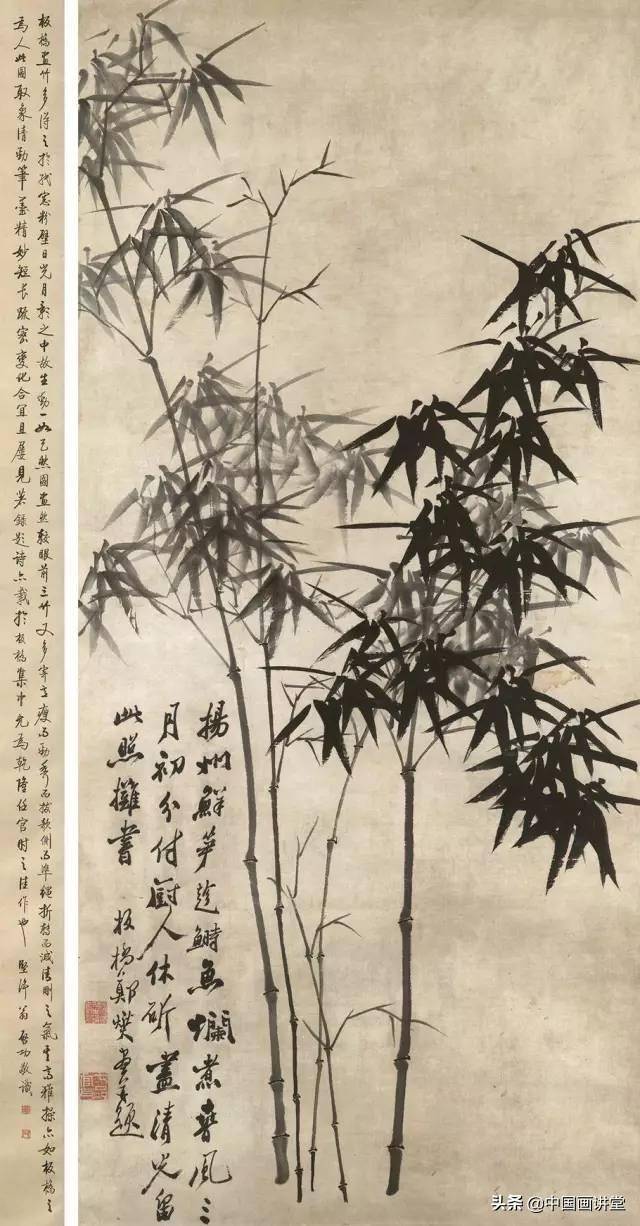 揚州鮮笋趁鰣魚爛煮春風三
月初分付厨人休斫盡清光留
此照攤書 板橋鄭燮畫并題
板橋畫竹多得之於紙窗粉壁日光月影之中故生動一如天然圖畫然較眼前之竹又多 瘦而勁秀而拔欹側而準繩折轉而 清剛之氣 高雅操亦如板橋之
為人此圖取象清勁筆墨精妙短長疏密變化合宜且屢見著録題詩亦載於板橋集中尤為乾隆任官時之佳作也 堅浄翁啓功敬識
头条 @中国画讲堂